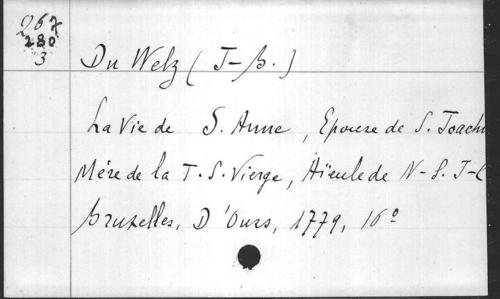 267
280
3
Du Welz (J-B.)
La Vie de S. Anne, Epouse de S. Joach
Mére de la T. S. Vierge, Aïeule de N-S. J-C
Bruxelles, D'Ours, 1779, 16°